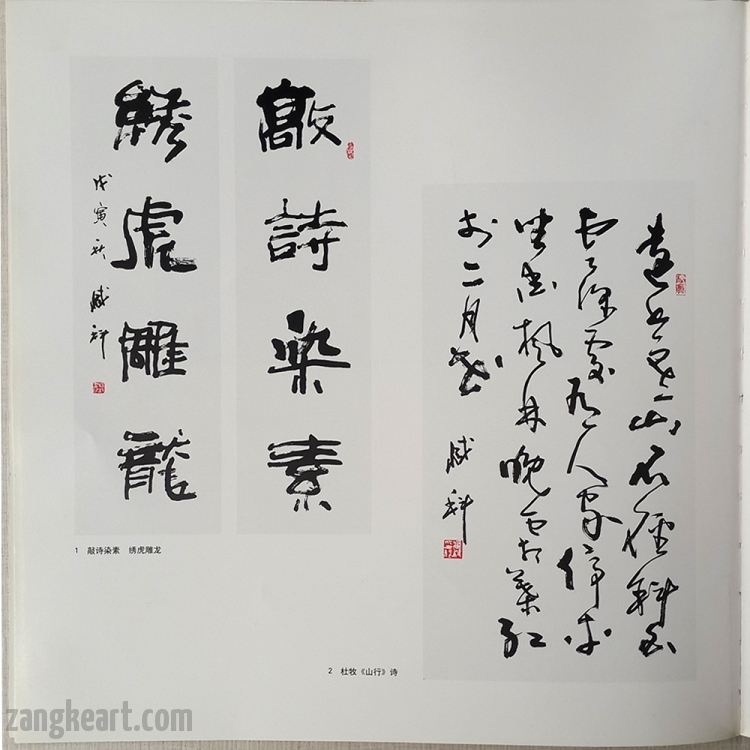 敲詩染素
繡虎雕龍
戊寅秋 臧科
1 敲诗染素 绣虎雕龙
遠上寒山石徑斜白
云深處有人家停車
坐愛楓林晚霜葉紅
於二月花
臧科
2 杜牧《山行》诗
zangkeart.com